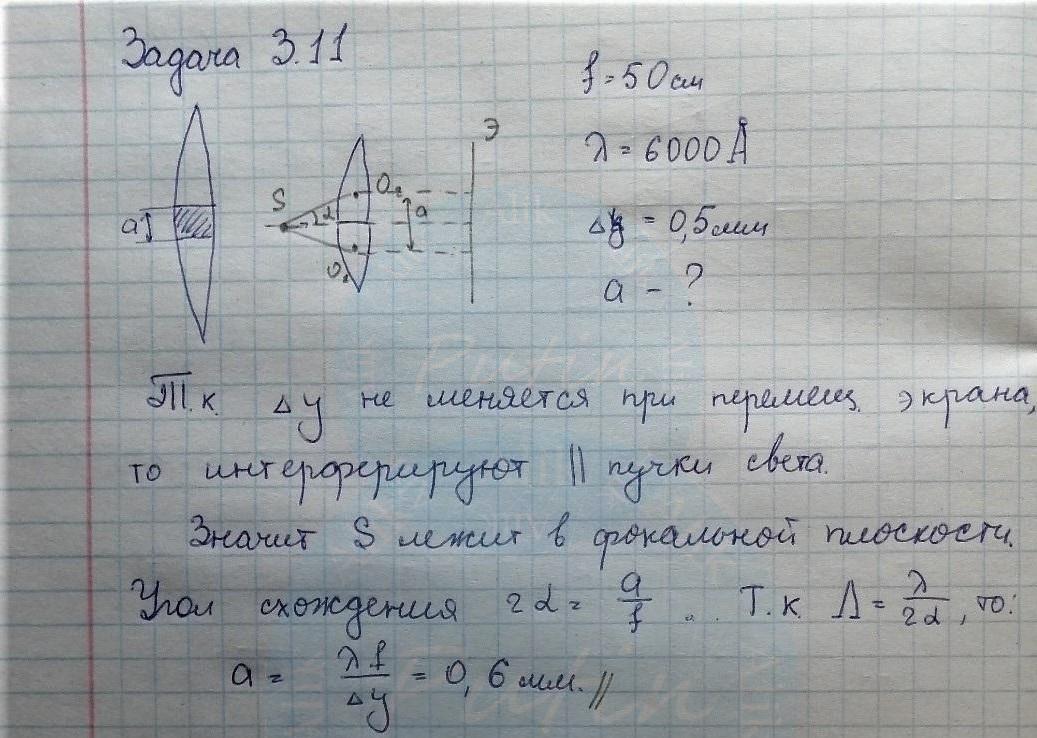 Задача 3.11
f = 50 см
λ = 6000 Å
Δy = 0,5 мм
a - ?
a
S
2α
O₂
a
O₁
Э
Т.к. Δy не меняется при перемещ. экрана,
то интерферируют || пучки света.
Значит S лежит в фокальной плоскости.
Угол схождения 2α = a/f . Т.к. Λ = λ/2α, то:
a = λf/Δy = 0,6 мм. //
Putin
Putin